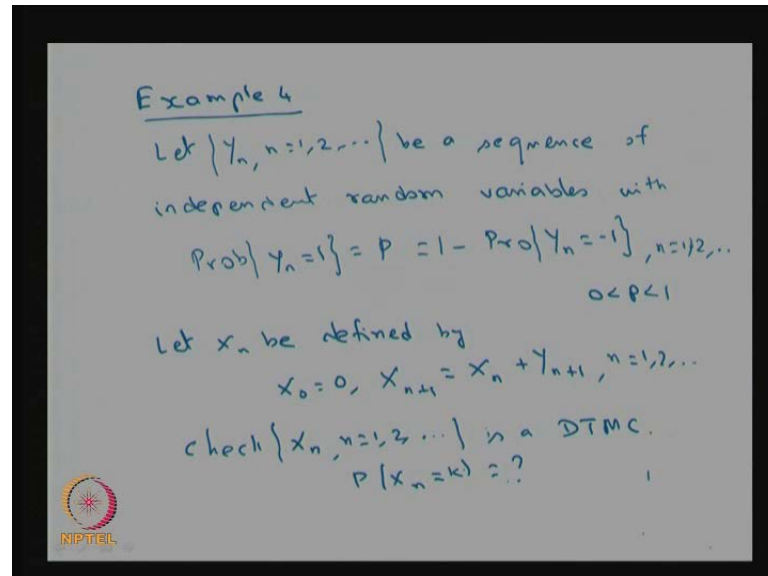 Example 4
Let {Yn, n=1,2,...} be a sequence of
independent random variables with
Prob{Yn=1} = P = 1 - Pro{Yn=-1}, n=1,2,..
0<P<1
Let Xn be defined by
X0=0, Xn+1 = Xn + Yn+1, n=1,2,...
check {Xn, n=1,2,...} is a DTMC.
P(Xn=k) = ?
NPTEL